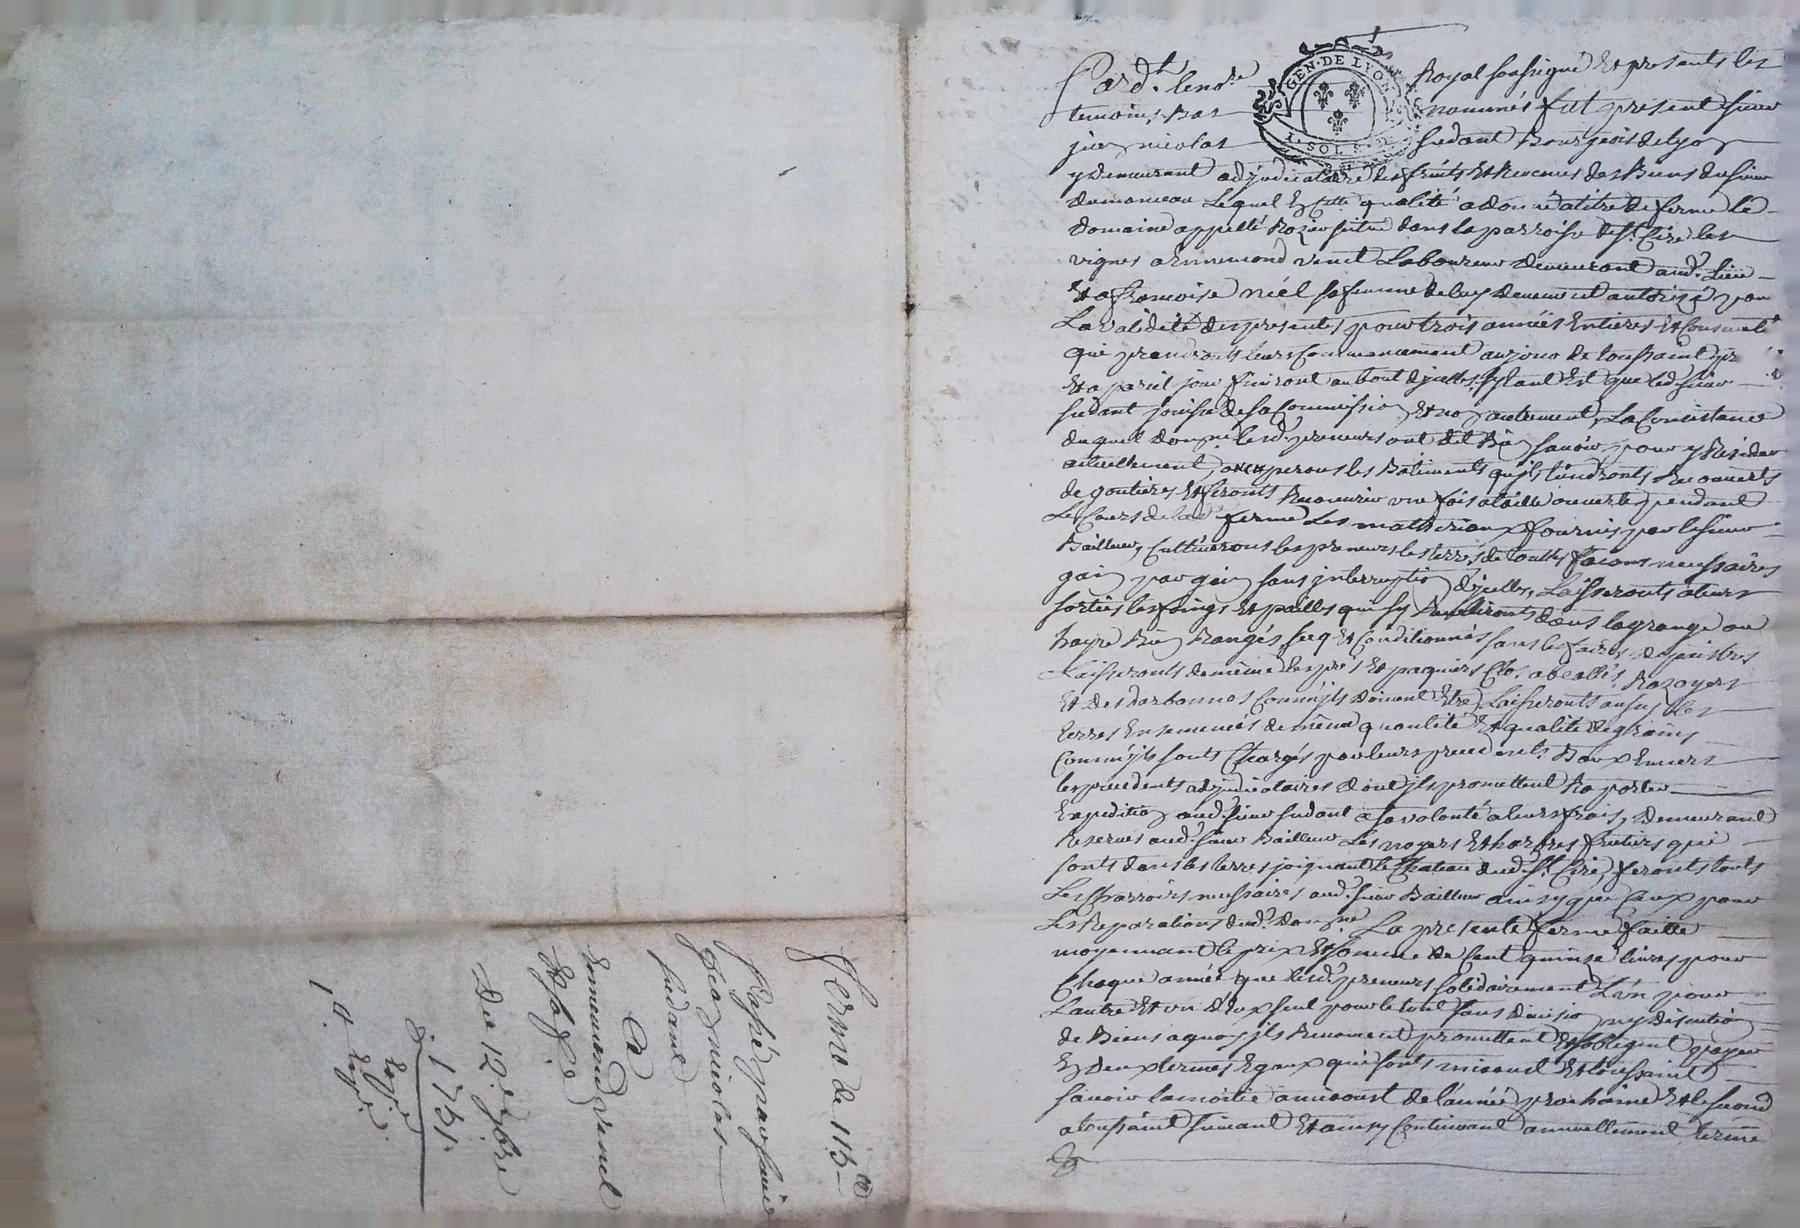 GEN. DE LYON
I. SOL
Pard.t le no.re Royal soussigné Et presents les
temoins Bas nommés fut present sieur
jean nicolas sudant Bourgeois de lyon
y demeurant adjudicataire des fruits Et Revenus des Biens du sieur
dumanceau Lequel En cette qualité a donné a titre de ferme le
domaine appellé Rozier scitué dans la parroisse de s.t Cire les
vignes a Ennemond venet Laboureur demeurant aud.t Lieu
Et a françoise niél sa femme de luy deuement autorisé pour
La validité des presentes pour trois années Entieres Et Consecut.
qui prendronts leurs Commencement au jour de toussaint
Et a pareil jour finiront au bout d'jcelles, sy tant Est que led. sieur
sudant jouisse de sa Commission Et non autrement, La Consistance
duquel dom.ne lesd. preneurs ont dit Bien savoir pour y Resider
actuellement, occuperons les Batiments qu'ils tiendronts Recouverts
de goutieres Et feronts Recouvrir une fois a taille ouverte pendant
Le Cours de lad. ferme Les materiaux fournis par le sieur
Bailleur, Cultiverons les preneurs les terres de touttes facons necessaires
gain par gain sans jnterruption d'jcelles, Laisseronts a leurs
sorties les foings Et pailles qui sy Recuilliront dans la grange ou
Rangés secq Et Conditionnés sans les faires
Laisseronts de même les prés Et paquiers Clos
Et Comm'jls doivent Etre, Laisseronts aussy les
terres Ensemencés de même quantité Et qualité de grains
Comm'jls sonts Chargés par leurs precedents Baux Envers
les precedents adjudicataires dont jls promettent Raporter
Expedition aud. sieur sudant a sa volonté a leurs frais, demeurant
Reservés aud. sieur Bailleur Les noyers Et harbres fruitiers qui
sonts dans les terres joignant le Chateau dud. s.t Cire, feronts touts
Les Charrois necessaires aud. sieur Bailleur ainsy que Ceux pour
Les Reparations dud. dom.ne La presente ferme faitte
moyennant le prix Et somme de Cent quinse livres pour
Chaque année que lesd. preneurs solidairement L'un pour
L'autre Et un d'eux seul pour le tout sans division ny discution
de Biens a quoy jls Renoncent promettent Et s'obligent payer
En deux termes Egaux qui sonts mioust Et toussaint
savoir la moitié a mioust de l'année prochaine Et le second
a toussaint suivant Et ainsy Continuant annuellement terme
ferme de 115
Passé par sieur
jean nicolas
sudant
a
Ennemond venet
Et sa f.e
Du 12.e 9bre
1751.